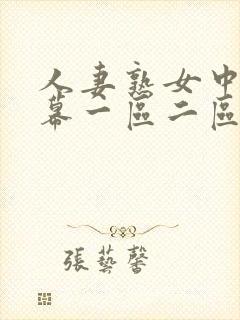 人妻熟女中
幕一區二區
張藝馨